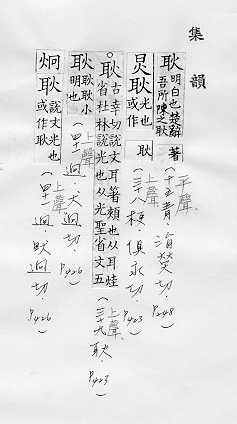 集韻
耿 明白也楚辭吾所陳之耿著 (十五青 涓熒切. P248 平聲
炅耿 光也或作耿 (三十八梗. 俱永切. P423 上聲
○耿 古幸切說文耳箸頰也从耳烓省杜林說光也从光聖省文五 (三十九 耿) P423 上聲
耿 耿耿小明也 迥. 犬迥切. P426 上聲
炯耿 說文光也或作耿 迥. 畎迥切. P426 上聲